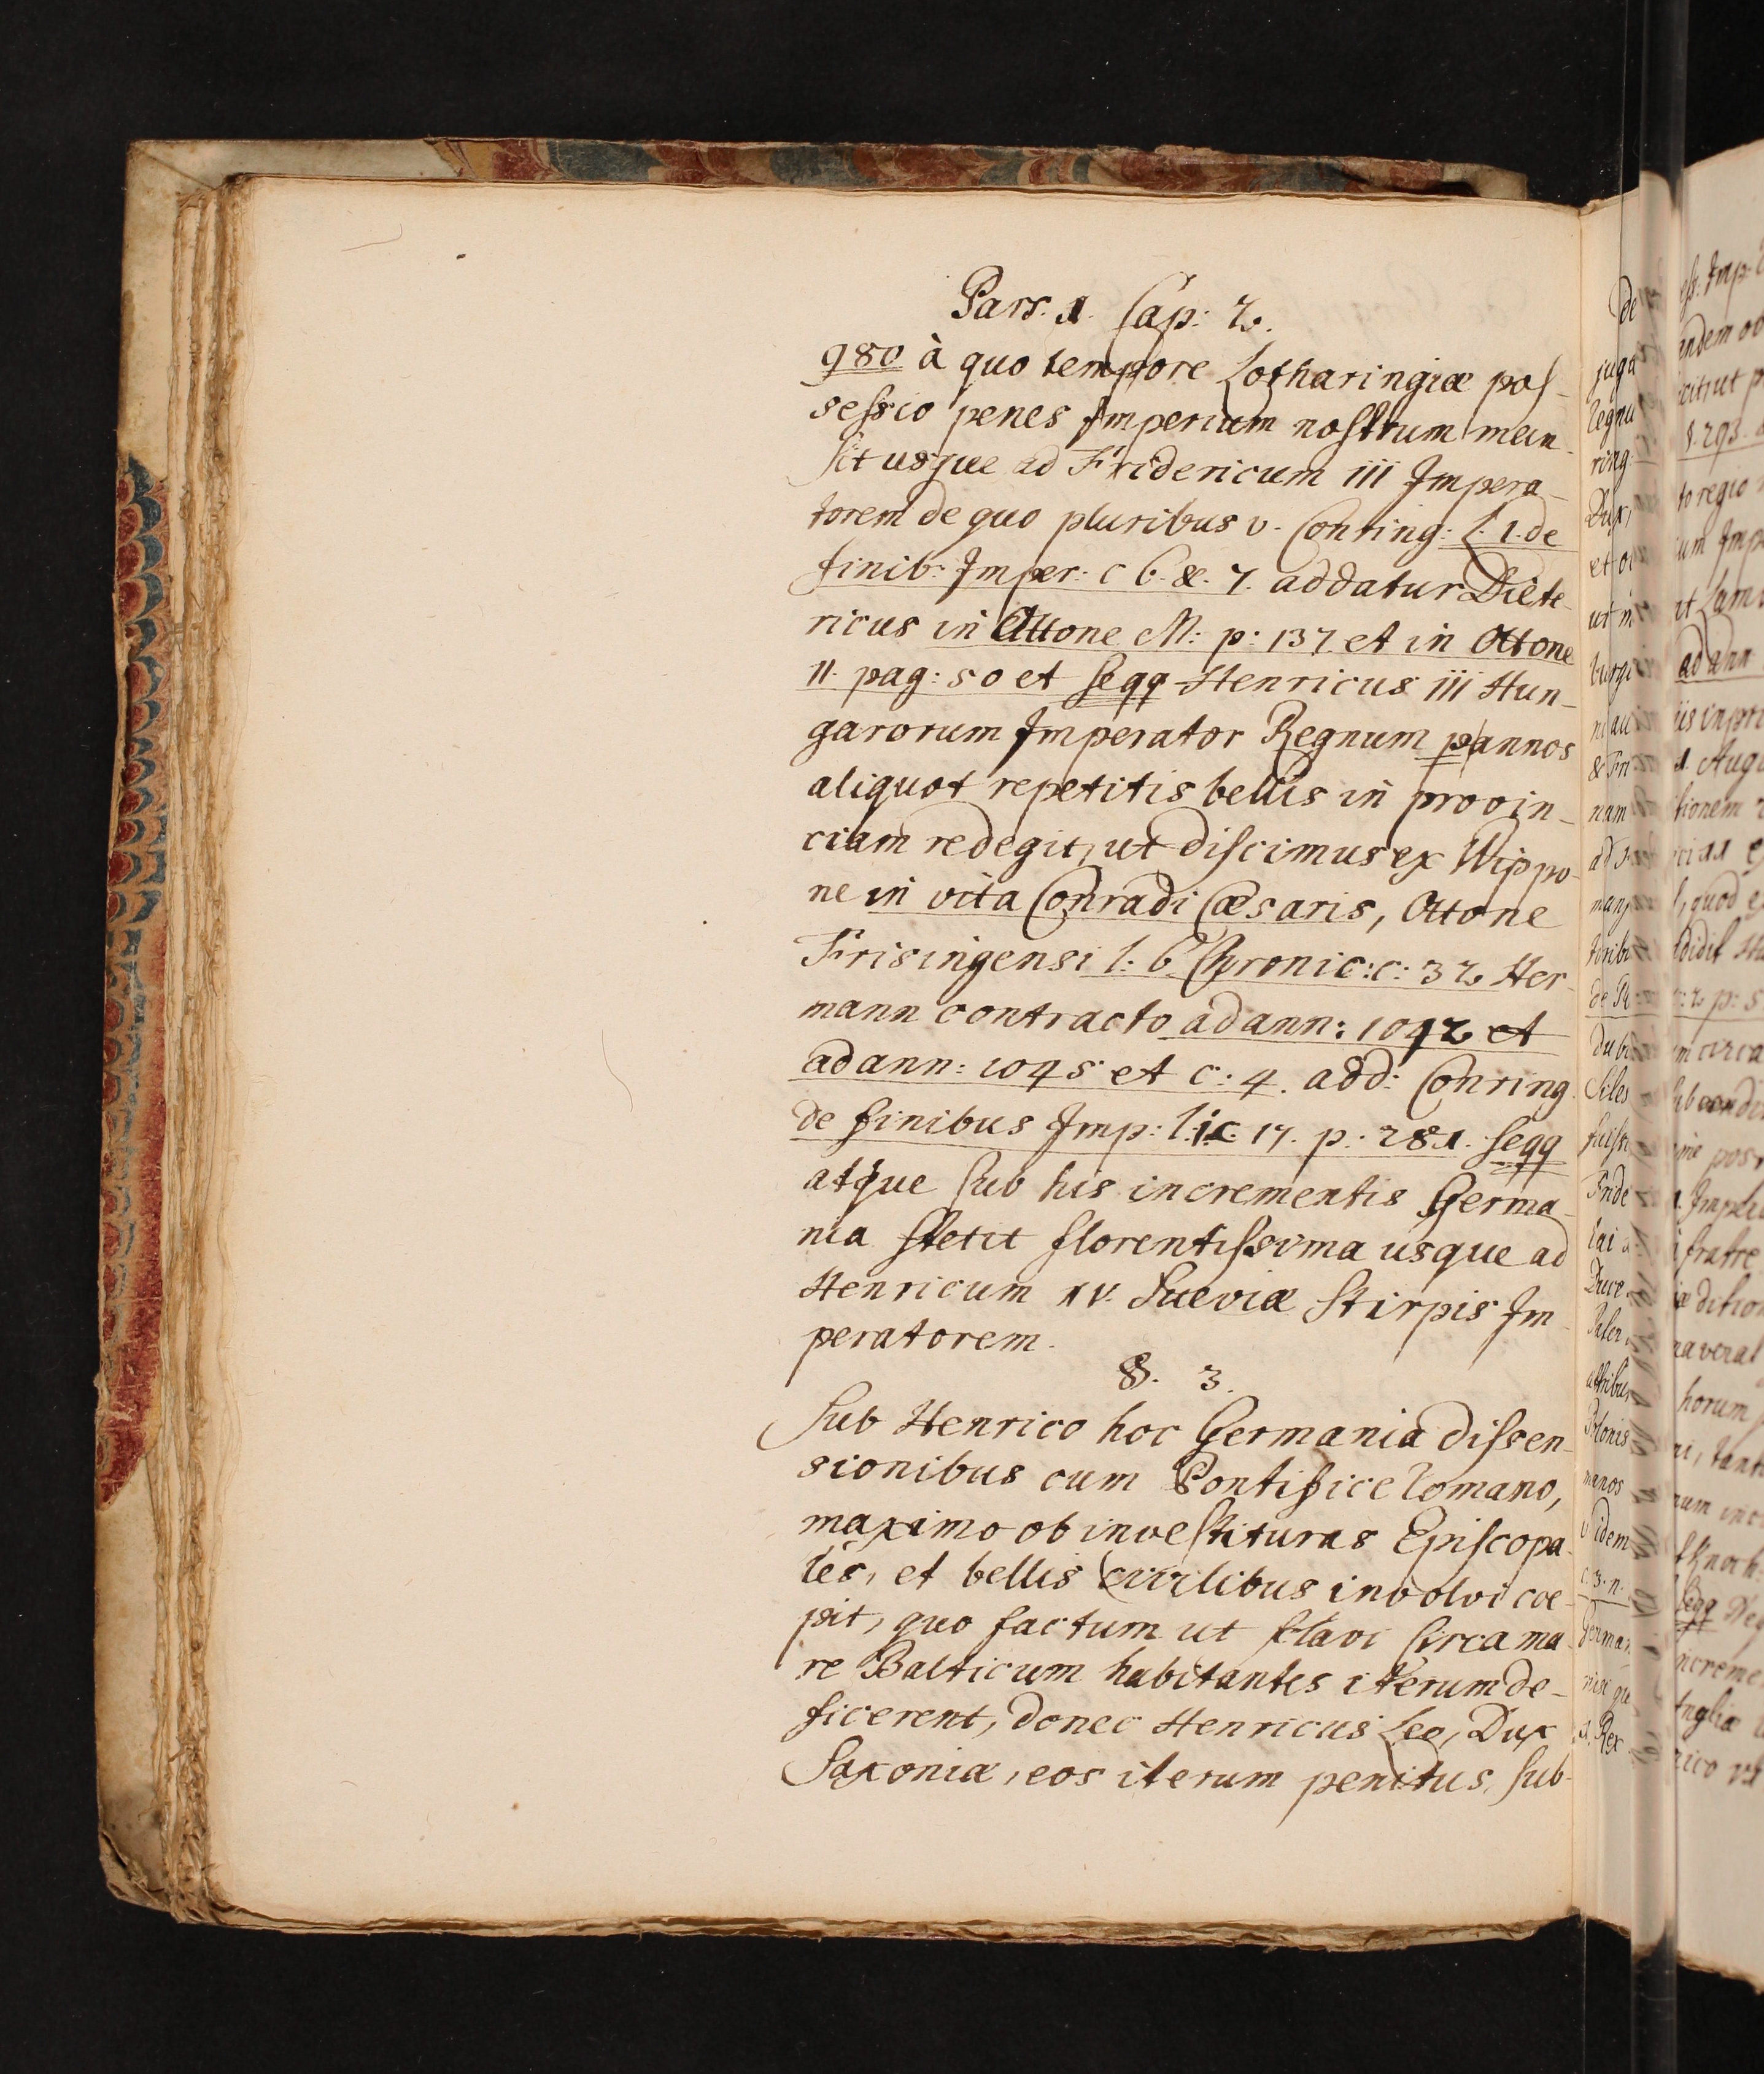 Pars. 1. Cap: 2.
980 à quo tempore Lotharingiæ pos-
sessio penes Imperium nostrum man-
sit usque ad Fridericum iii Impera-
torem de quo pluribus v. Conring: L. 1. de
finib: Imper: c 6. &. 7. addatur Diete-
ricus in Ottone M: p: 137 et in Ottone
II. pag: 50 et seqq Henricus iii Hun-
garorum Imperator Regnum p annos
aliquot repetitis bellis in provin-
ciam redegit, ut discimus ex Wippo-
ne in vita Conradi Cæsaris, Ottone
Frisingensi l: 6. Chronic: c: 32 Her-
mann contracto ad ann: 1042 et
ad ann: 1045 et c: 4. add: Conring.
de finibus Imp: l. 1. c. 17. p: 281. seqq
atque sub his incrementis Germa-
nia stetit florentissima usque ad
Henricum IV. Sueviæ Stirpis Im-
peratorem.
§. 3.
Sub Henrico hoc Germania dissen-
sionibus cum Pontifice Romano,
maximo ob investituras Episcopa-
les, et bellis civilibus involvi coe-
pit, quo factum ut Slavi circa ma-
re Balticum habitantes iterum de-
ficerent, donec Henricus Leo, Dux
Saxoniæ, eos iterum penitus sub-